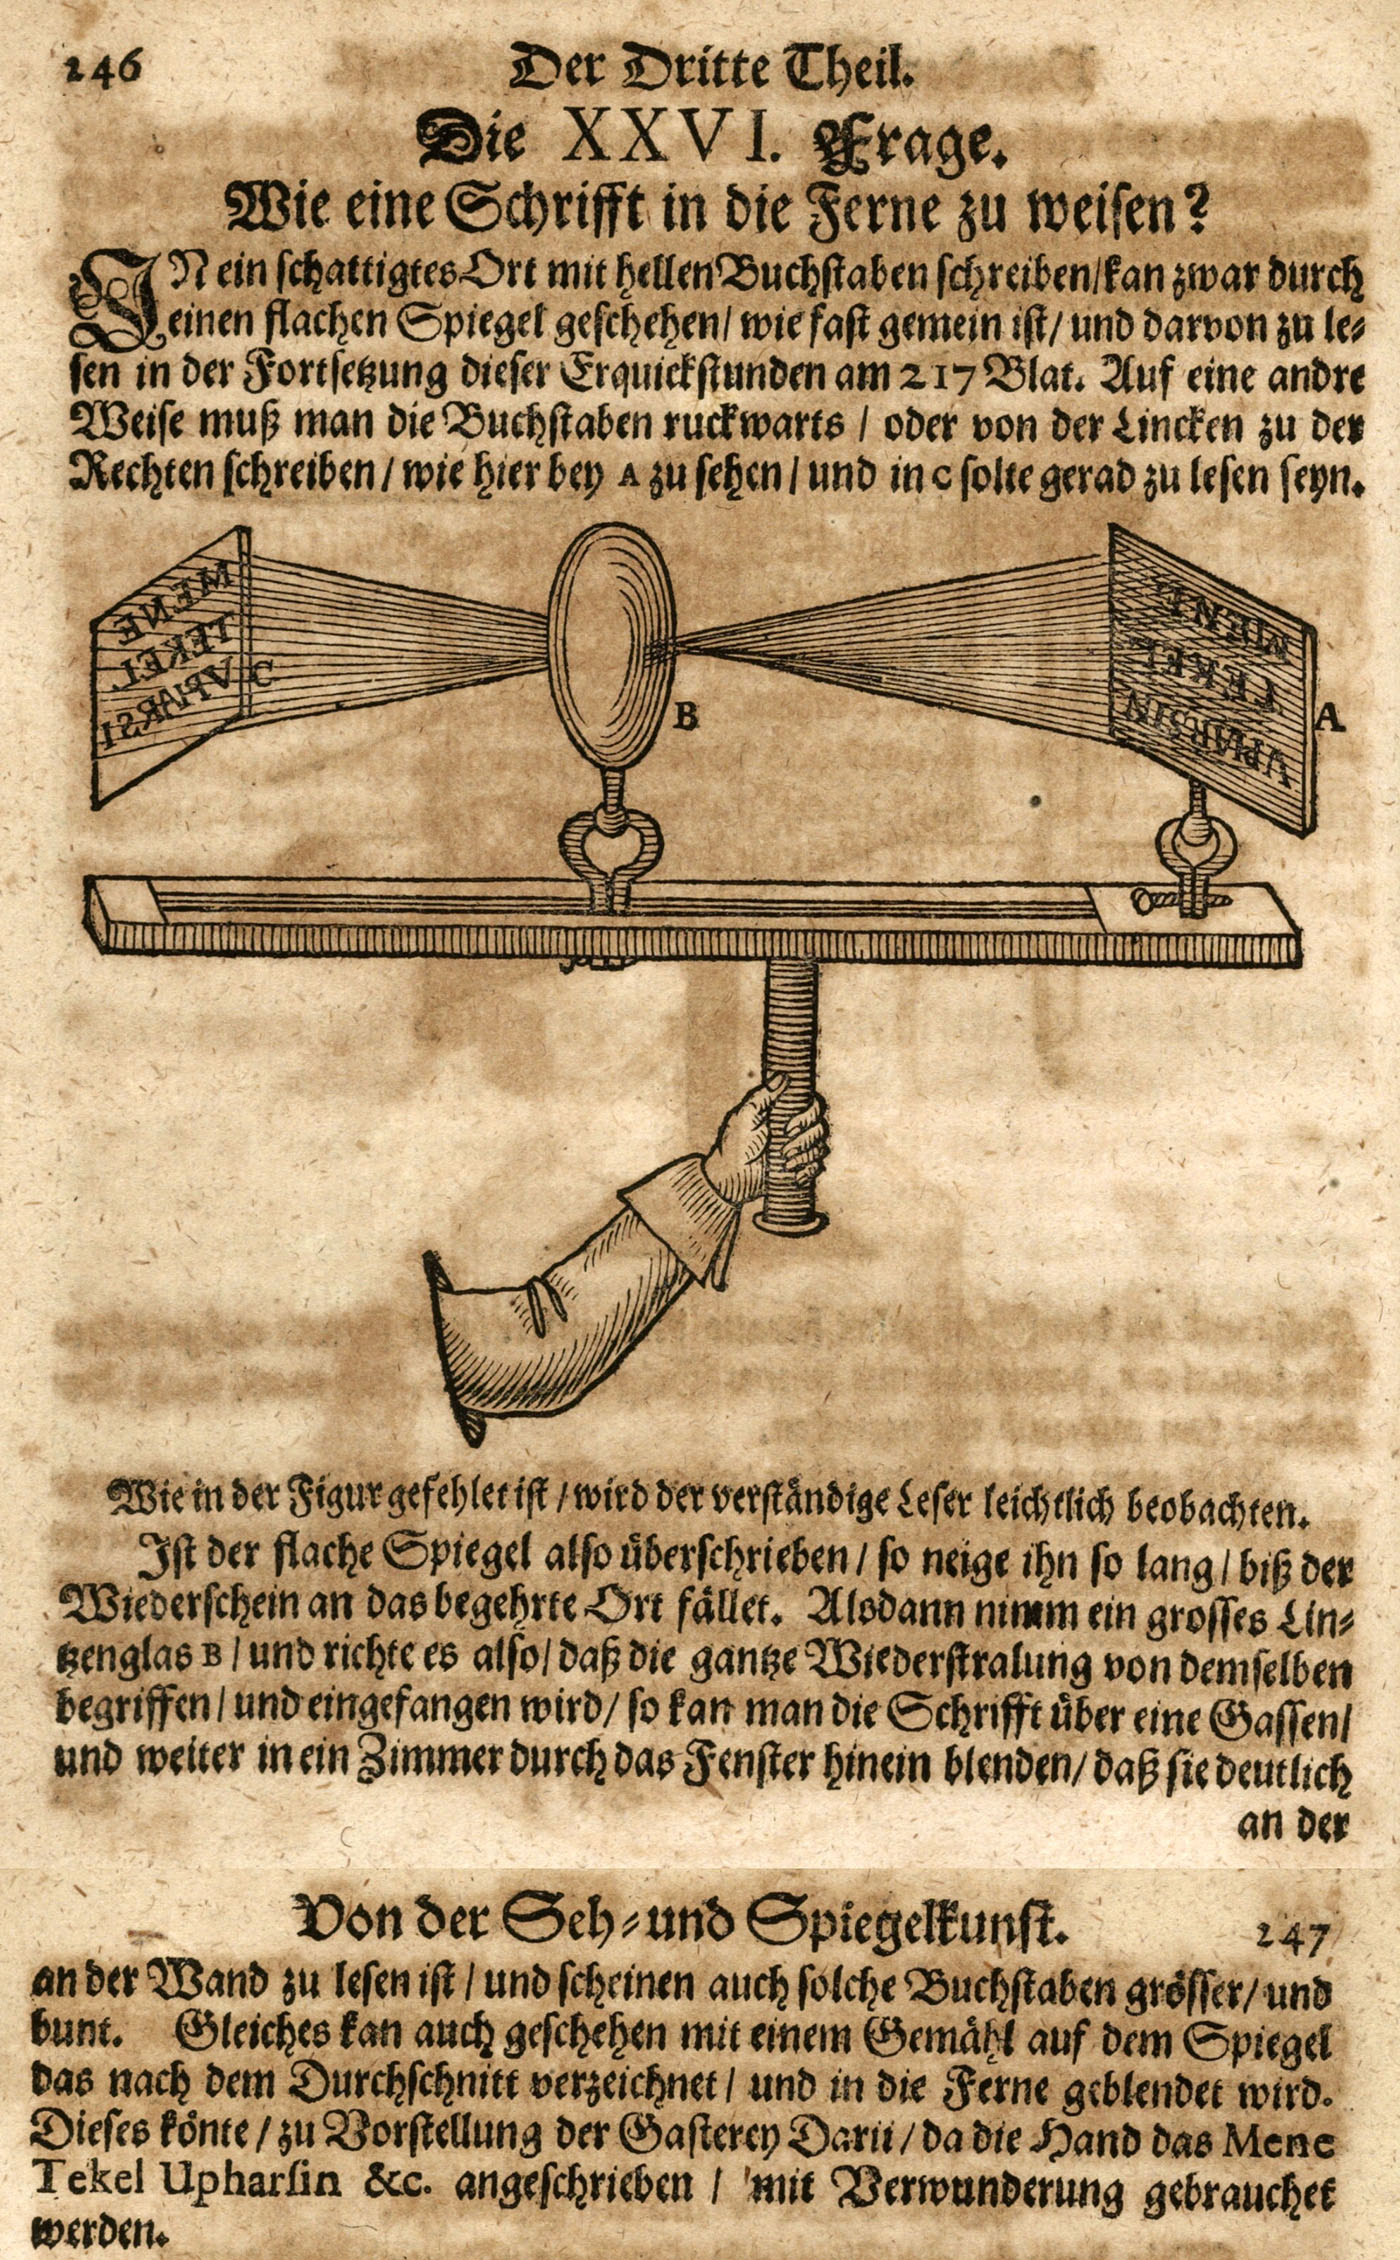 246
Der Dritte Theil.
Die XXVI. Frage.
Wie eine Schrifft in die Ferne zu weisen?
IN ein schattigtes Ort mit hellen Buchstaben schreiben/kan zwar durch
einen flachen Spiegel geschehen/ wie fast gemein ist/ und darvon zu le-
sen in der Fortsetzung dieser Erquickstunden am 217 Blat. Auf eine andre
Weise muß man die Buchstaben ruckwarts / oder von der Lincken zu der
Rechten schreiben/ wie hier bey A zu sehen/ und in C solte gerad zu lesen seyn.
MENE
TEKEL
VPHARSI
C
B
MENE
TEKEL
VPHARSIN
A
Wie in der Figur gefehlet ist / wird der verständige Leser leichtlich beobachten.
Ist der flache Spiegel also überschrieben/ so neige ihn so lang/ biß der
Wiederschein an das begehrte Ort fället. Alsdann nimm ein grosses Lin-
tzenglas B / und richte es also/ daß die gantze Wiederstralung von demselben
begriffen/ und eingefangen wird/ so kan man die Schrifft über eine Gassen/
und weiter in ein Zimmer durch das Fenster hinein blenden/ daß sie deutlich
an der
Von der Seh-und Spiegelkunst.
247
an der Wand zu lesen ist / und scheinen auch solche Buchstaben grösser/ und
bunt. Gleiches kan auch geschehen mit einem Gemähl auf dem Spiegel
das nach dem Durchschnitt verzeichnet/ und in die Ferne geblendet wird.
Dieses könte / zu Vorstellung der Gasterey Darii/ da die Hand das Mene
Tekel Upharsin &c. angeschrieben / mit Verwunderung gebrauchet
werden.